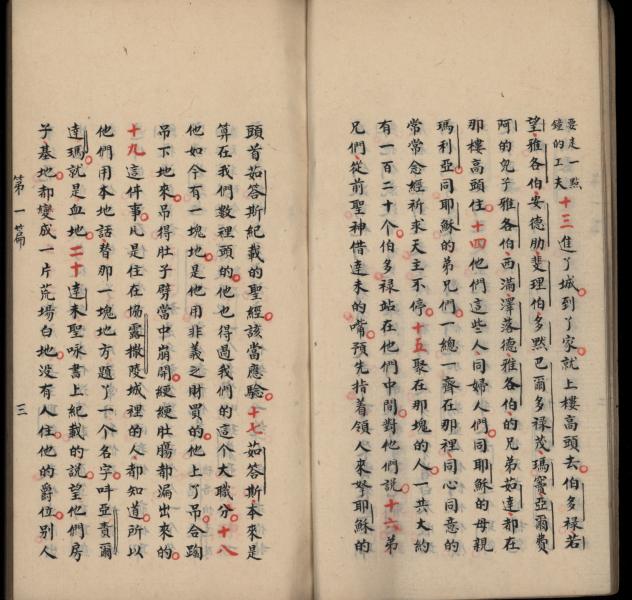 要走一點
鐘的工夫
十三進了城到了家就上樓高頭去伯多祿若
望雅各伯安德肋斐理伯多默巴爾多祿茂瑪竇亞爾費
阿的兒子雅各伯西滿澤落德雅各伯的兄弟茹達都在
那樓高頭住十四他們這些人同婦人們同耶穌的母親
瑪利亞同耶穌的弟兄們一總一齊在那裡同心同意的
常常念經祈求天主不停十五聚在那塊的人一共大約
有一百二十个伯多祿站在他們中間對他們說十六弟
兄們從前聖神借達未的嘴預先指着領人來拏耶穌的
頭首茹答斯紀載的聖經該當應驗十七茹答斯本來是
算在我們數裡頭的他也得過我們的這个大職分十八
他如今有一塊地是他用非義之財買的他上了吊合踘
吊下地來吊得肚子劈當中崩開綆綆肚腸都漏出來的
十九這件事凡是住在協露撒陵城裡的人都知道所以
他們用本地話替那一塊地方題了一个名字呌亞責爾
達瑪就是血地二十達未聖咏書上紀載的說望他們房
子基地都變成一片荒場白地没有人住他的爵位別人
第一篇
三